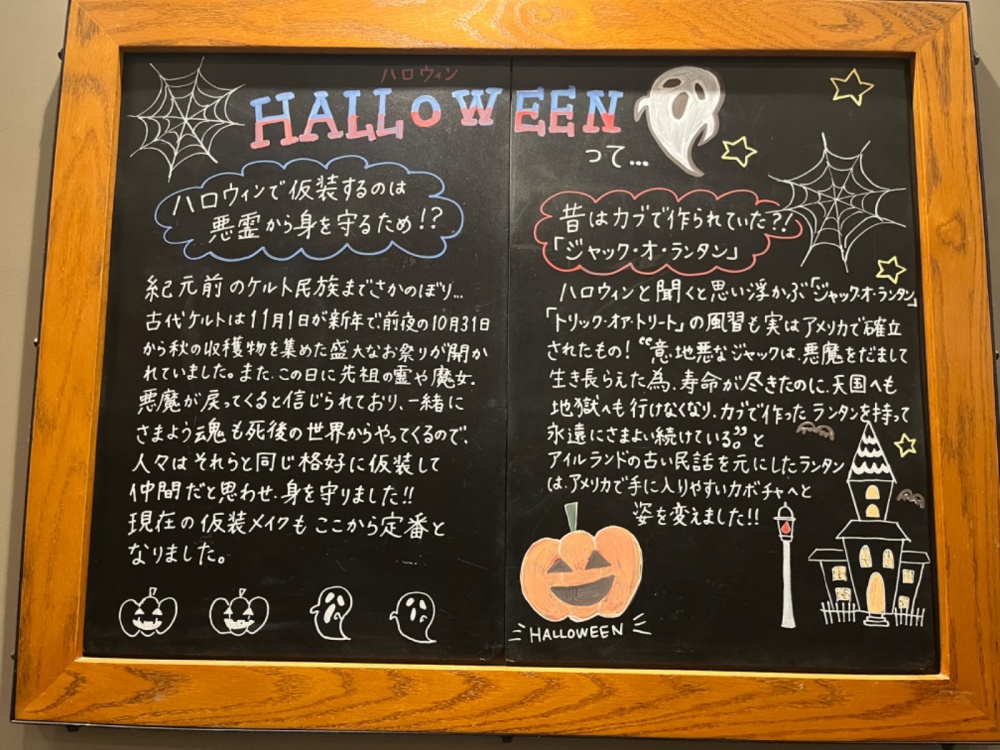 ハロウィン
HALLOWEEN
って…
ハロウィンで仮装するのは
悪霊から身を守るため!?
紀元前のケルト民族までさかのぼり…
古代ケルトは11月1日が新年で前夜の10月31日
から秋の収穫物を集めた盛大なお祭りが開か
れていました。また、この日に先祖の霊や魔女、
悪魔が戻ってくると信じられており、一緒に
さまよう魂も死後の世界からやってくるので、
人々はそれらと同じ格好に仮装して
仲間だと思わせ、身を守りました!!
現在の仮装メイクもここから定番と
なりました。
昔はカブで作られていた?!
「ジャック・オ・ランタン」
ハロウィンと聞くと思い浮かぶ「ジャック・オ・ランタン」
「トリック・オア・トリート」の風習も実はアメリカで確立
されたもの!“意地悪なジャックは、悪魔をだまして
生き長らえた為、寿命が尽きたのに、天国へも
地獄へも行けなくなり、カブで作ったランタンを持って
永遠にさまよい続けている。”と
アイルランドの古い民話を元にしたランタン
は、アメリカで手に入りやすいカボチャへと
姿を変えました!!
HALLOWEEN